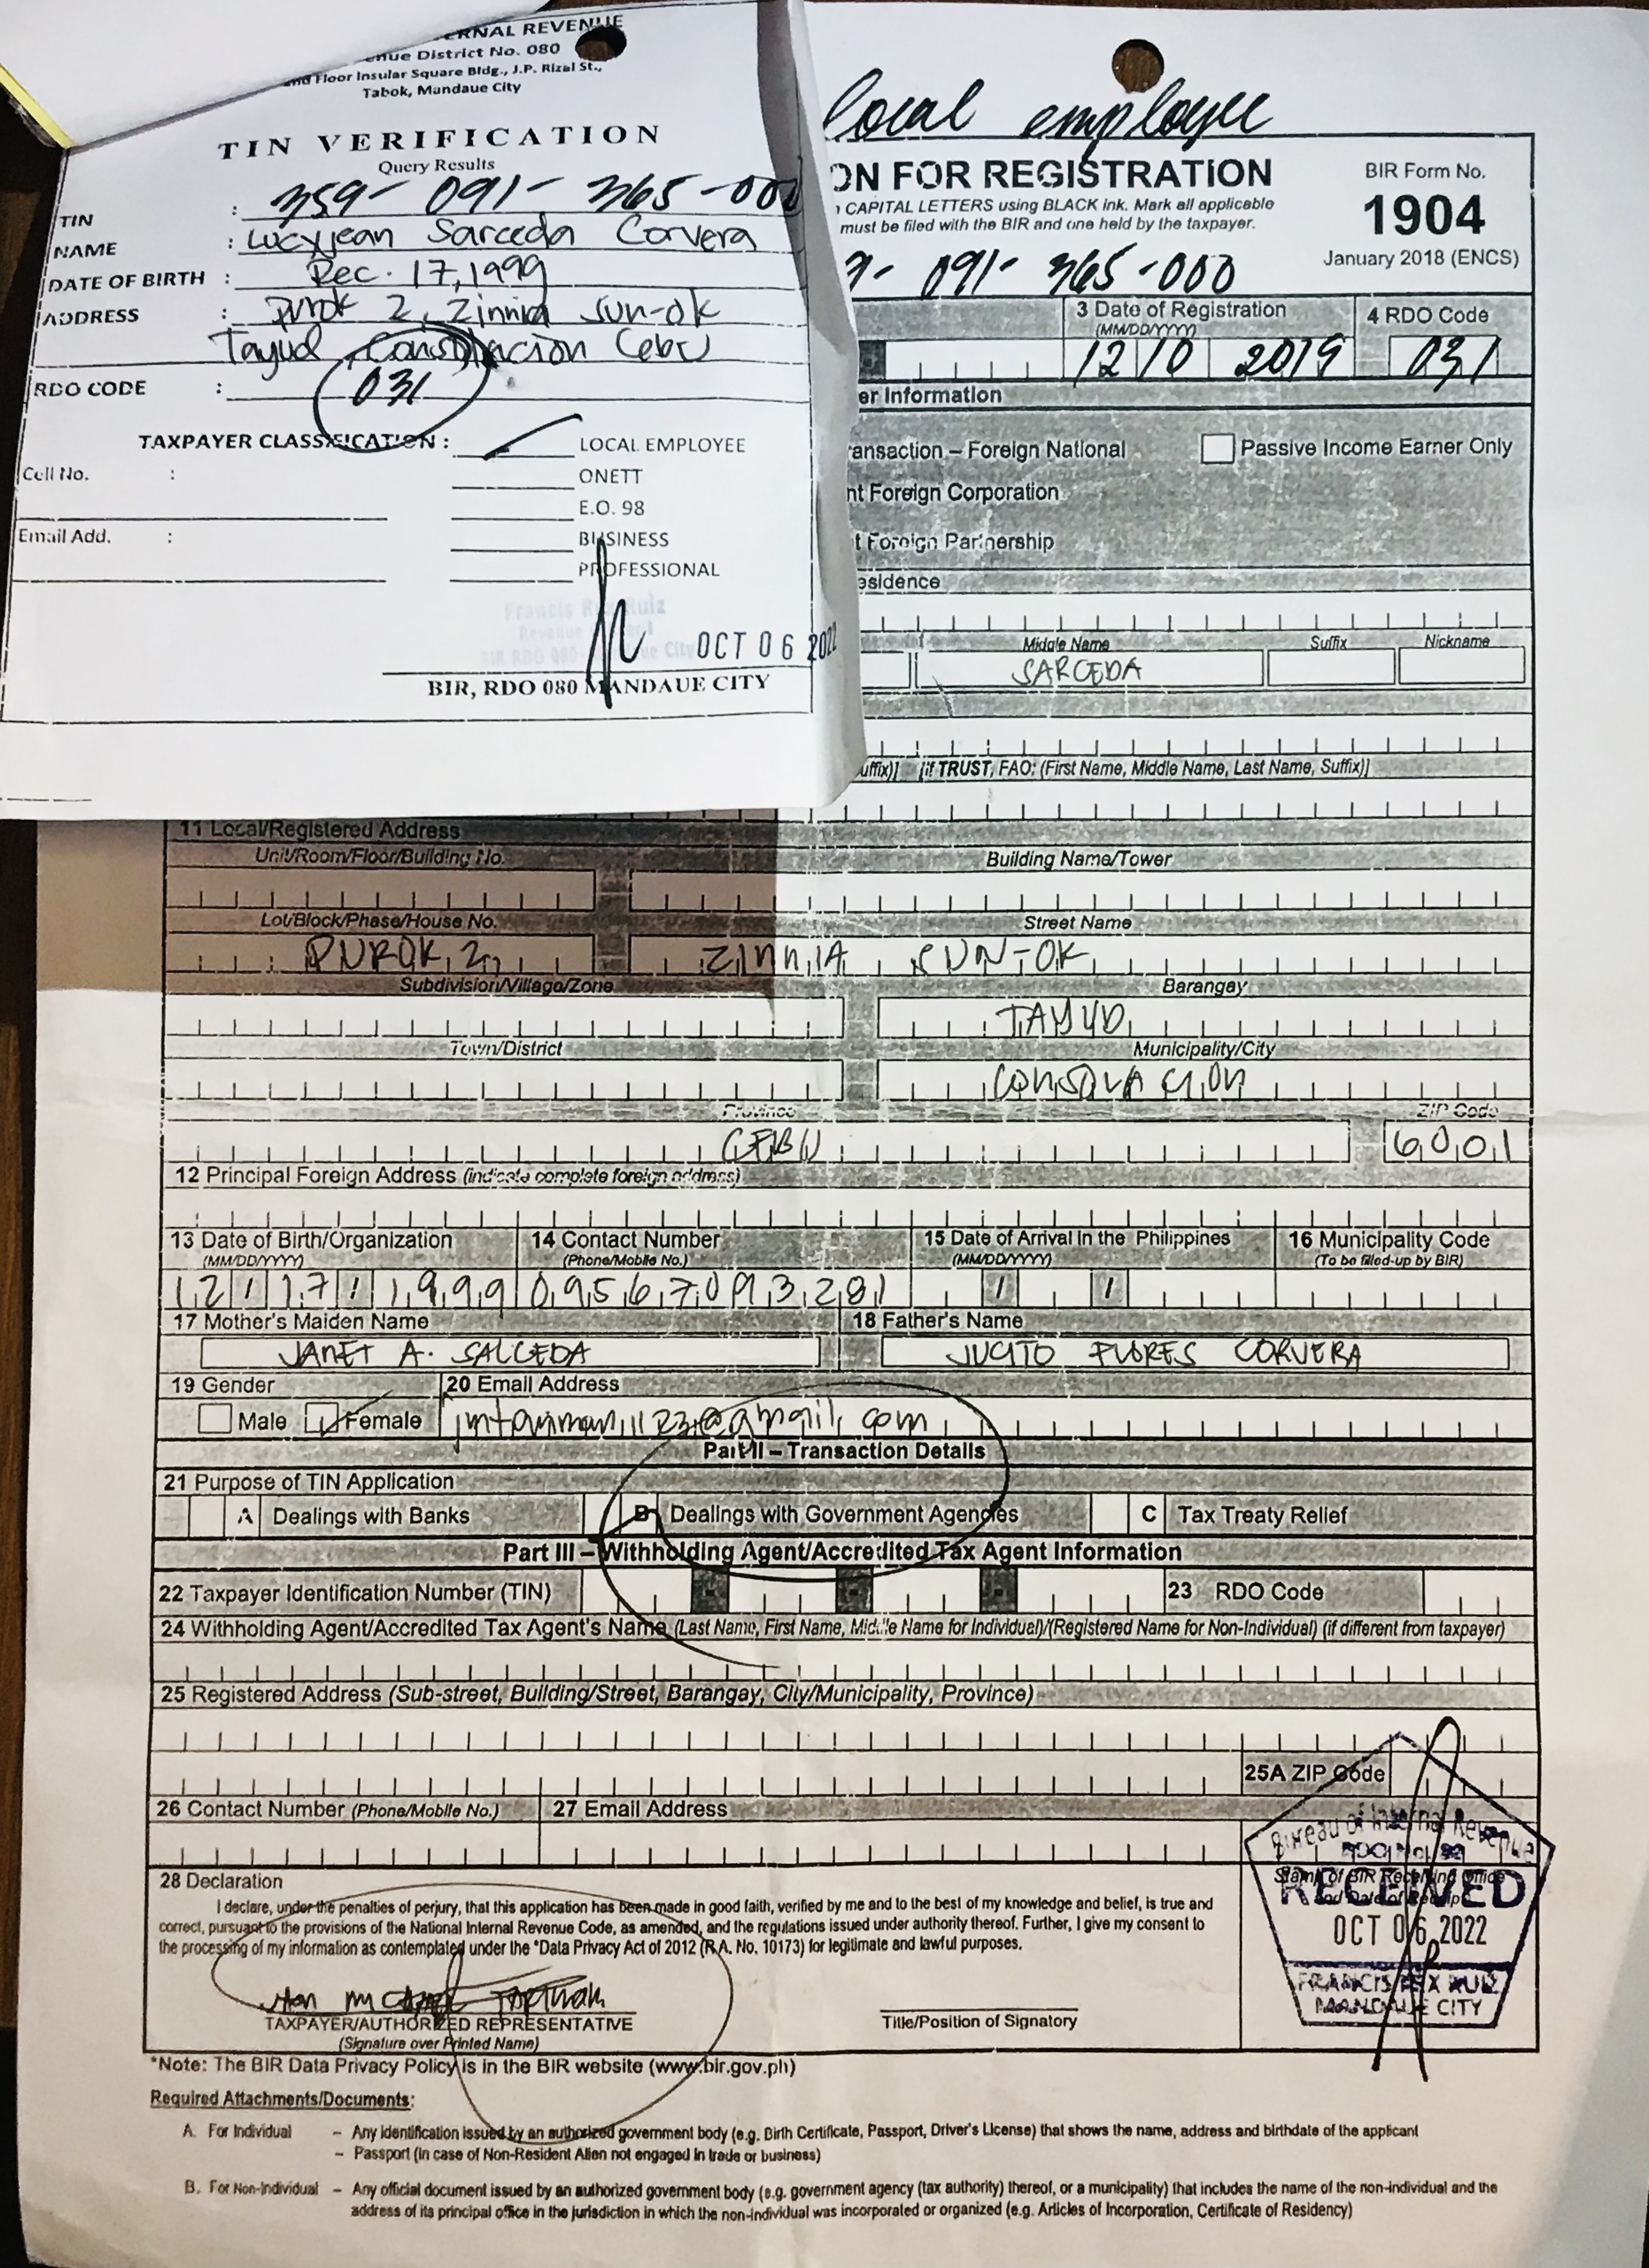 ERNAL REVENUE
enue District No. 080
Floor Insular Square Bldg., J.P. Rizal St.,
Tabok, Mandaue City
TIN VERIFICATION
Query Results
TIN : 359-091-365-000
NAME : Lucyjean Sarceda Corvera
DATE OF BIRTH : Dec. 17, 1999
ADDRESS : Purok 2, Zinnia Sun-ok
Tayud, Consolacion Cebu
RDO CODE : 031
TAXPAYER CLASSIFICATION : LOCAL EMPLOYEE
Cell No. : ONETT
E.O. 98
Email Add. : BUSINESS
PROFESSIONAL
Francis Rex Ruiz
OCT 06 2022
BIR, RDO 080 MANDAUE CITY
local employee
ON FOR REGISTRATION
CAPITAL LETTERS using BLACK ink. Mark all applicable
must be filed with the BIR and one held by the taxpayer.
BIR Form No.
1904
January 2018 (ENCS)
9-091-365-000
3 Date of Registration
(MM/DD/YYYY)
12 10 2019
4 RDO Code
031
er Information
ansaction – Foreign National
Passive Income Earner Only
nt Foreign Corporation
t Foreign Partnership
esidence
Middle Name Suffix Nickname
SARCEDA
uffix)] [if TRUST, FAO: (First Name, Middle Name, Last Name, Suffix)]
11 Local/Registered Address
Unit/Room/Floor/Building No. Building Name/Tower
Lot/Block/Phase/House No. Street Name
PUROK 2, ZINNIA SUN-OK
Subdivision/Village/Zone Barangay
TAYUD
Town/District Municipality/City
CONSOLACION
Province ZIP Code
CEBU 6001
12 Principal Foreign Address (indicate complete foreign address)
13 Date of Birth/Organization 14 Contact Number 15 Date of Arrival in the Philippines 16 Municipality Code
(MM/DD/YYYY) (Phone/Mobile No.) (MM/DD/YYYY) (To be filled-up by BIR)
12/17/1999 09567093281 / /
17 Mother's Maiden Name 18 Father's Name
JANET A. SALCEDA JUCITO FLORES CORVERA
19 Gender 20 Email Address
Male Female
Part II – Transaction Details
21 Purpose of TIN Application
A Dealings with Banks B Dealings with Government Agencies C Tax Treaty Relief
Part III – Withholding Agent/Accredited Tax Agent Information
22 Taxpayer Identification Number (TIN) - - - 23 RDO Code
24 Withholding Agent/Accredited Tax Agent's Name (Last Name, First Name, Middle Name for Individual)/(Registered Name for Non-Individual) (if different from taxpayer)
25 Registered Address (Sub-street, Building/Street, Barangay, City/Municipality, Province)
25A ZIP Code
26 Contact Number (Phone/Mobile No.) 27 Email Address
28 Declaration
I declare, under the penalties of perjury, that this application has been made in good faith, verified by me and to the best of my knowledge and belief, is true and
correct, pursuant to the provisions of the National Internal Revenue Code, as amended, and the regulations issued under authority thereof. Further, I give my consent to
the processing of my information as contemplated under the *Data Privacy Act of 2012 (R.A. No. 10173) for legitimate and lawful purposes.
TAXPAYER/AUTHORIZED REPRESENTATIVE
(Signature over Printed Name)
Title/Position of Signatory
Stamp of BIR Receiving Office
and Date of Receipt
Bureau of Internal Revenue
RECEIVED
OCT 06 2022
FRANCIS REX RUIZ
MANDAUE CITY
*Note: The BIR Data Privacy Policy is in the BIR website (www.bir.gov.ph)
Required Attachments/Documents:
A. For Individual – Any identification issued by an authorized government body (e.g. Birth Certificate, Passport, Driver's License) that shows the name, address and birthdate of the applicant
– Passport (in case of Non-Resident Alien not engaged in trade or business)
B. For Non-Individual – Any official document issued by an authorized government body (e.g. government agency (tax authority) thereof, or a municipality) that includes the name of the non-individual and the
address of its principal office in the jurisdiction in which the non-individual was incorporated or organized (e.g. Articles of Incorporation, Certificate of Residency)